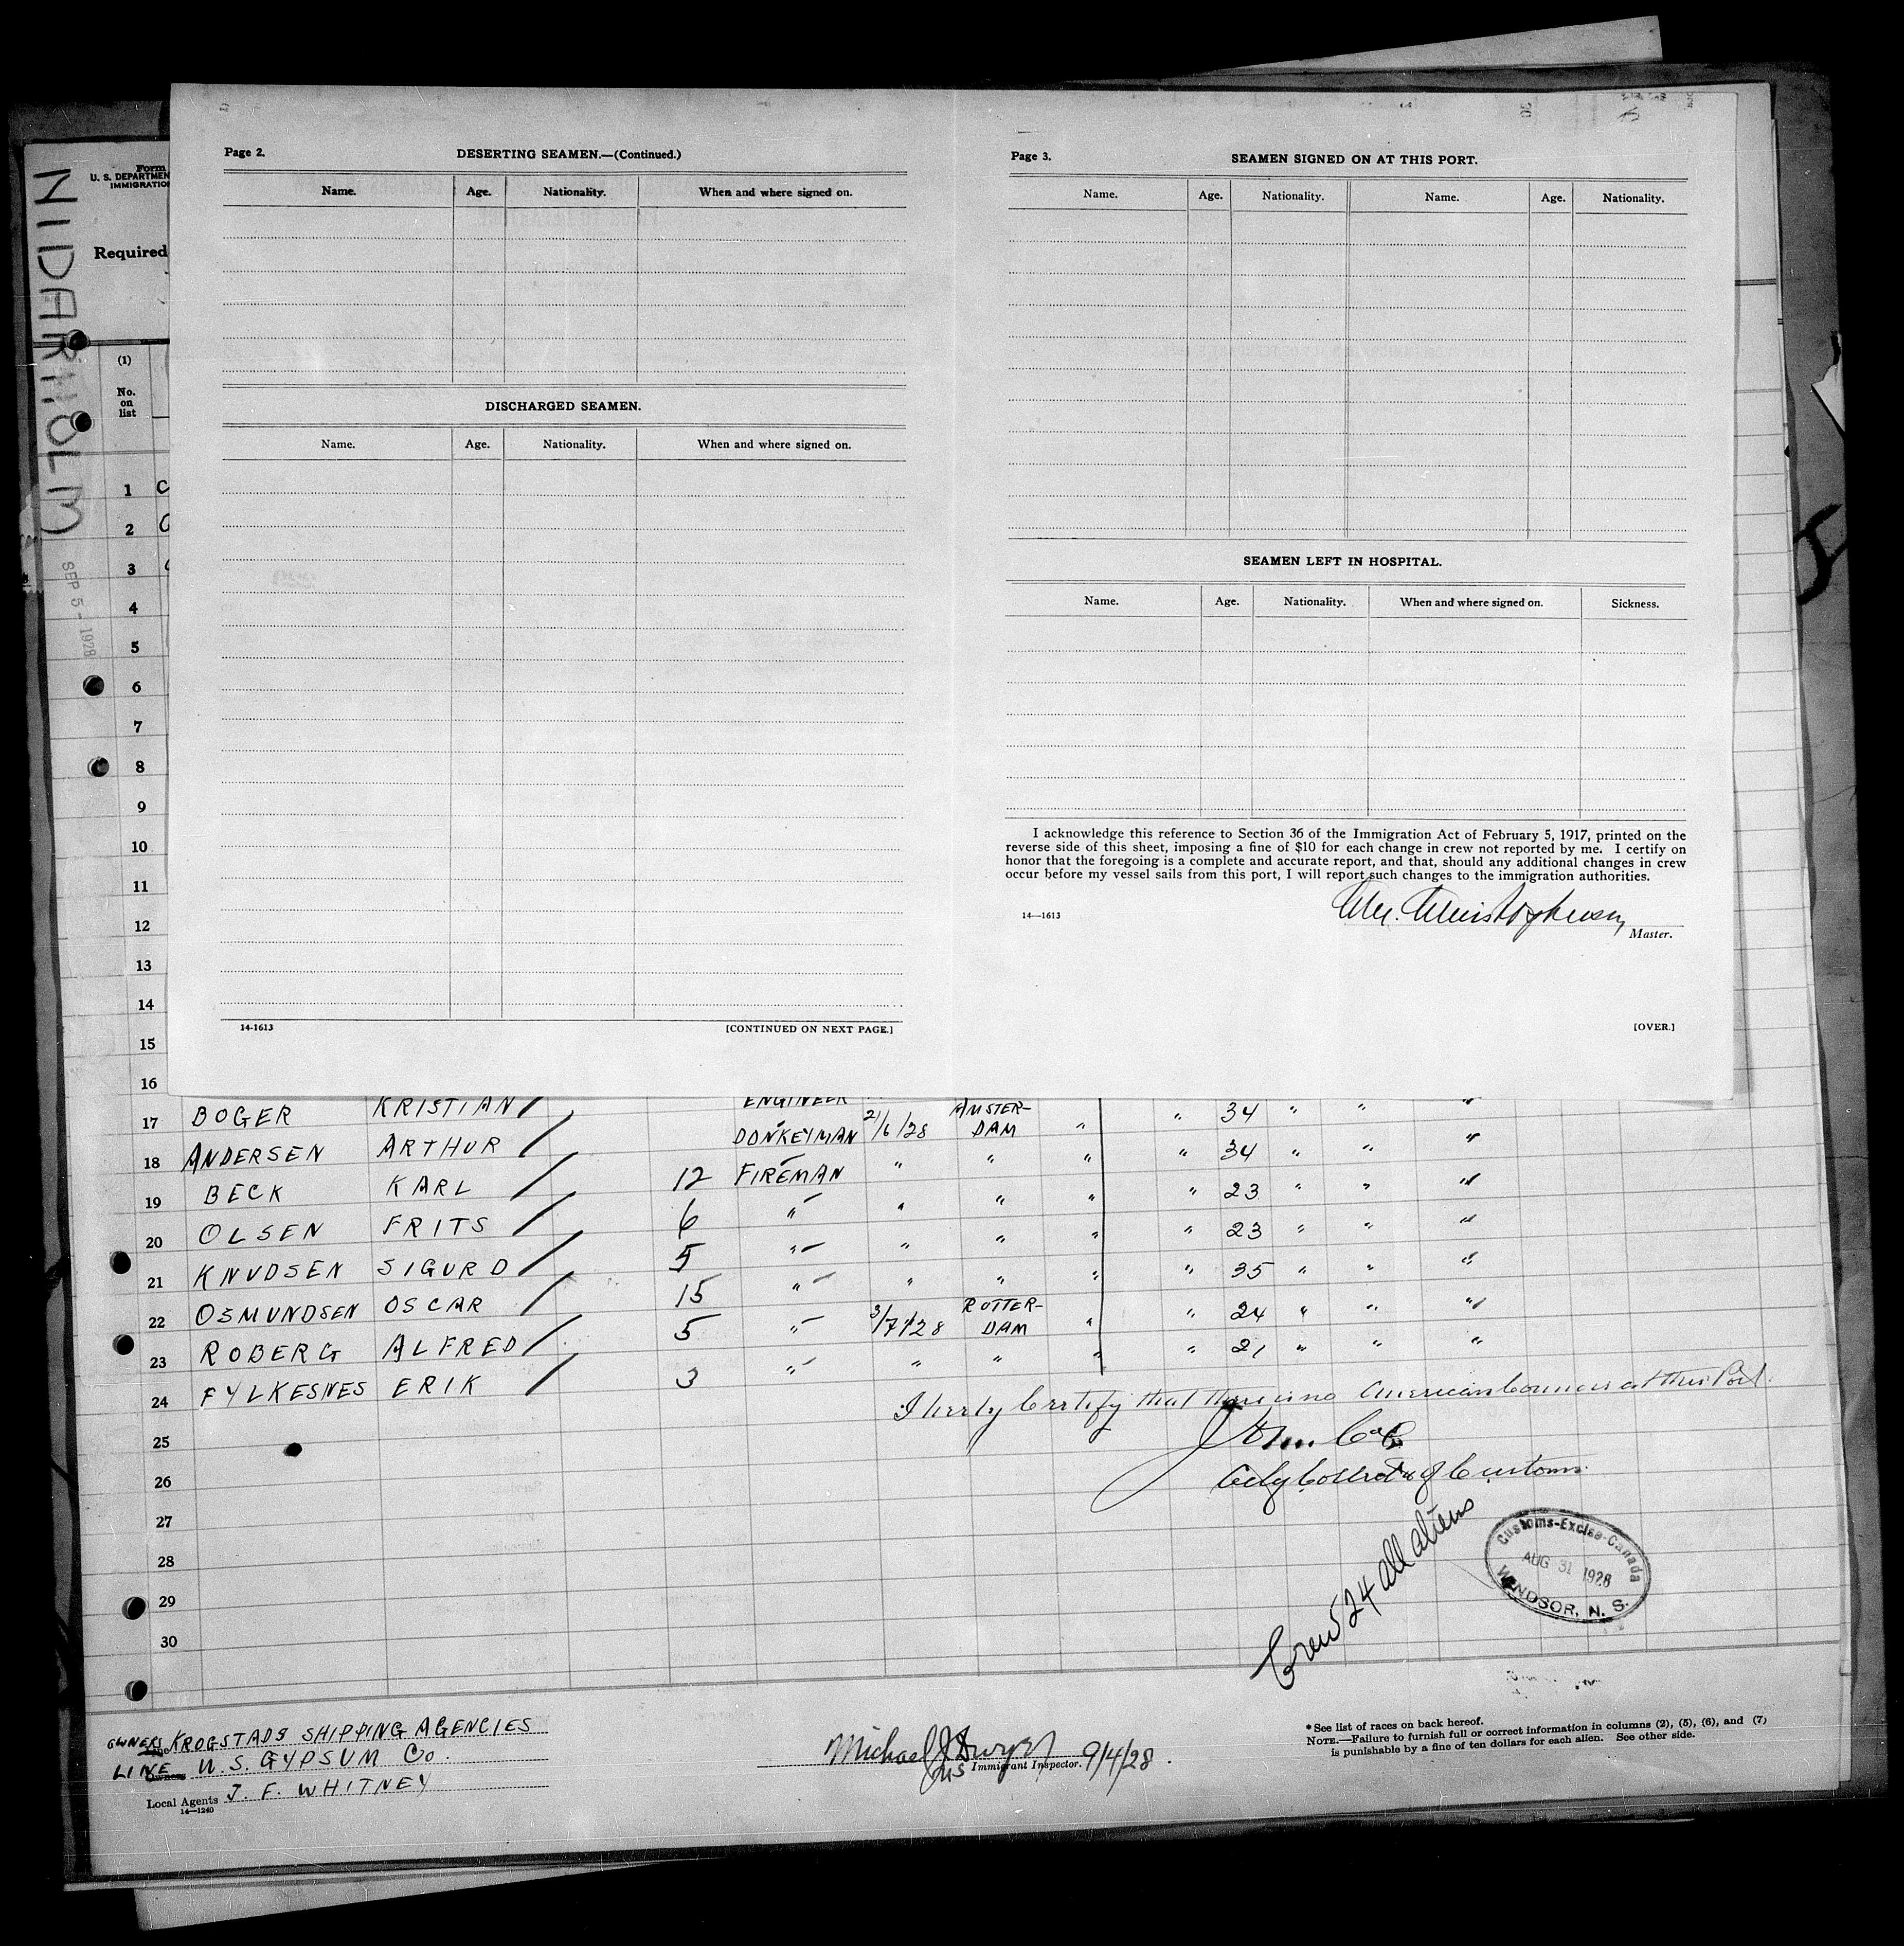 NIDARHOLM
SEP 5 - 1928
Form
U. S. DEPARTMEN
IMMIGRATIO
Required
(1)
No.
on
list
Page 2.
DESERTING SEAMEN.—(Continued.)
Name. Age. Nationality. When and where signed on.
DISCHARGED SEAMEN.
Name. Age. Nationality. When and where signed on.
14-1613
[CONTINUED ON NEXT PAGE.]
Page 3.
SEAMEN SIGNED ON AT THIS PORT.
Name. Age. Nationality. Name. Age. Nationality.
SEAMEN LEFT IN HOSPITAL.
Name. Age. Nationality. When and where signed on. Sickness.
I acknowledge this reference to Section 36 of the Immigration Act of February 5, 1917, printed on the
reverse side of this sheet, imposing a fine of $10 for each change in crew not reported by me. I certify on
honor that the foregoing is a complete and accurate report, and that, should any additional changes in crew
occur before my vessel sails from this port, I will report such changes to the immigration authorities.
14—1613
Master.
[OVER.]
1
2
3
4
5
6
7
8
9
10
11
12
13
14
15
16
17 BOGER KRISTIAN ENGINEER " 34 " " "
18 ANDERSEN ARTHUR DONKEYMAN 21/6/28 AMSTER-DAM " " 34 " " "
19 BECK KARL 12 FIREMAN " " " " 23 " " "
20 OLSEN FRITS 6 " " " " " 23 " " "
21 KNUDSEN SIGURD 5 " " " " " 35 " " "
22 OSMUNDSEN OSCAR 15 " " " " " 24 " " "
23 ROBERG ALFRED 5 " 3/7/28 ROTTER-DAM " " 21 " " "
24 FYLKESNES ERIK 3 " " " "
25
26
27
28
29
30
I herby Certify that there is no American Counsul at this Port.
John
Collector of Customs
Crew 24 all aliens
Customs-Excise-Canada
AUG 31 1928
WINDSOR, N. S.
OWNERS KROGSTADS SHIPPING AGENCIES
LINE U. S. GYPSUM CO.
Owners
Local Agents J. F. WHITNEY
14—1240
Michael J Dwyer
Ins
Immigrant Inspector. 9/4/28.
* See list of races on back hereof.
NOTE.—Failure to furnish full or correct information in columns (2), (5), (6), and (7)
is punishable by a fine of ten dollars for each alien. See other side.